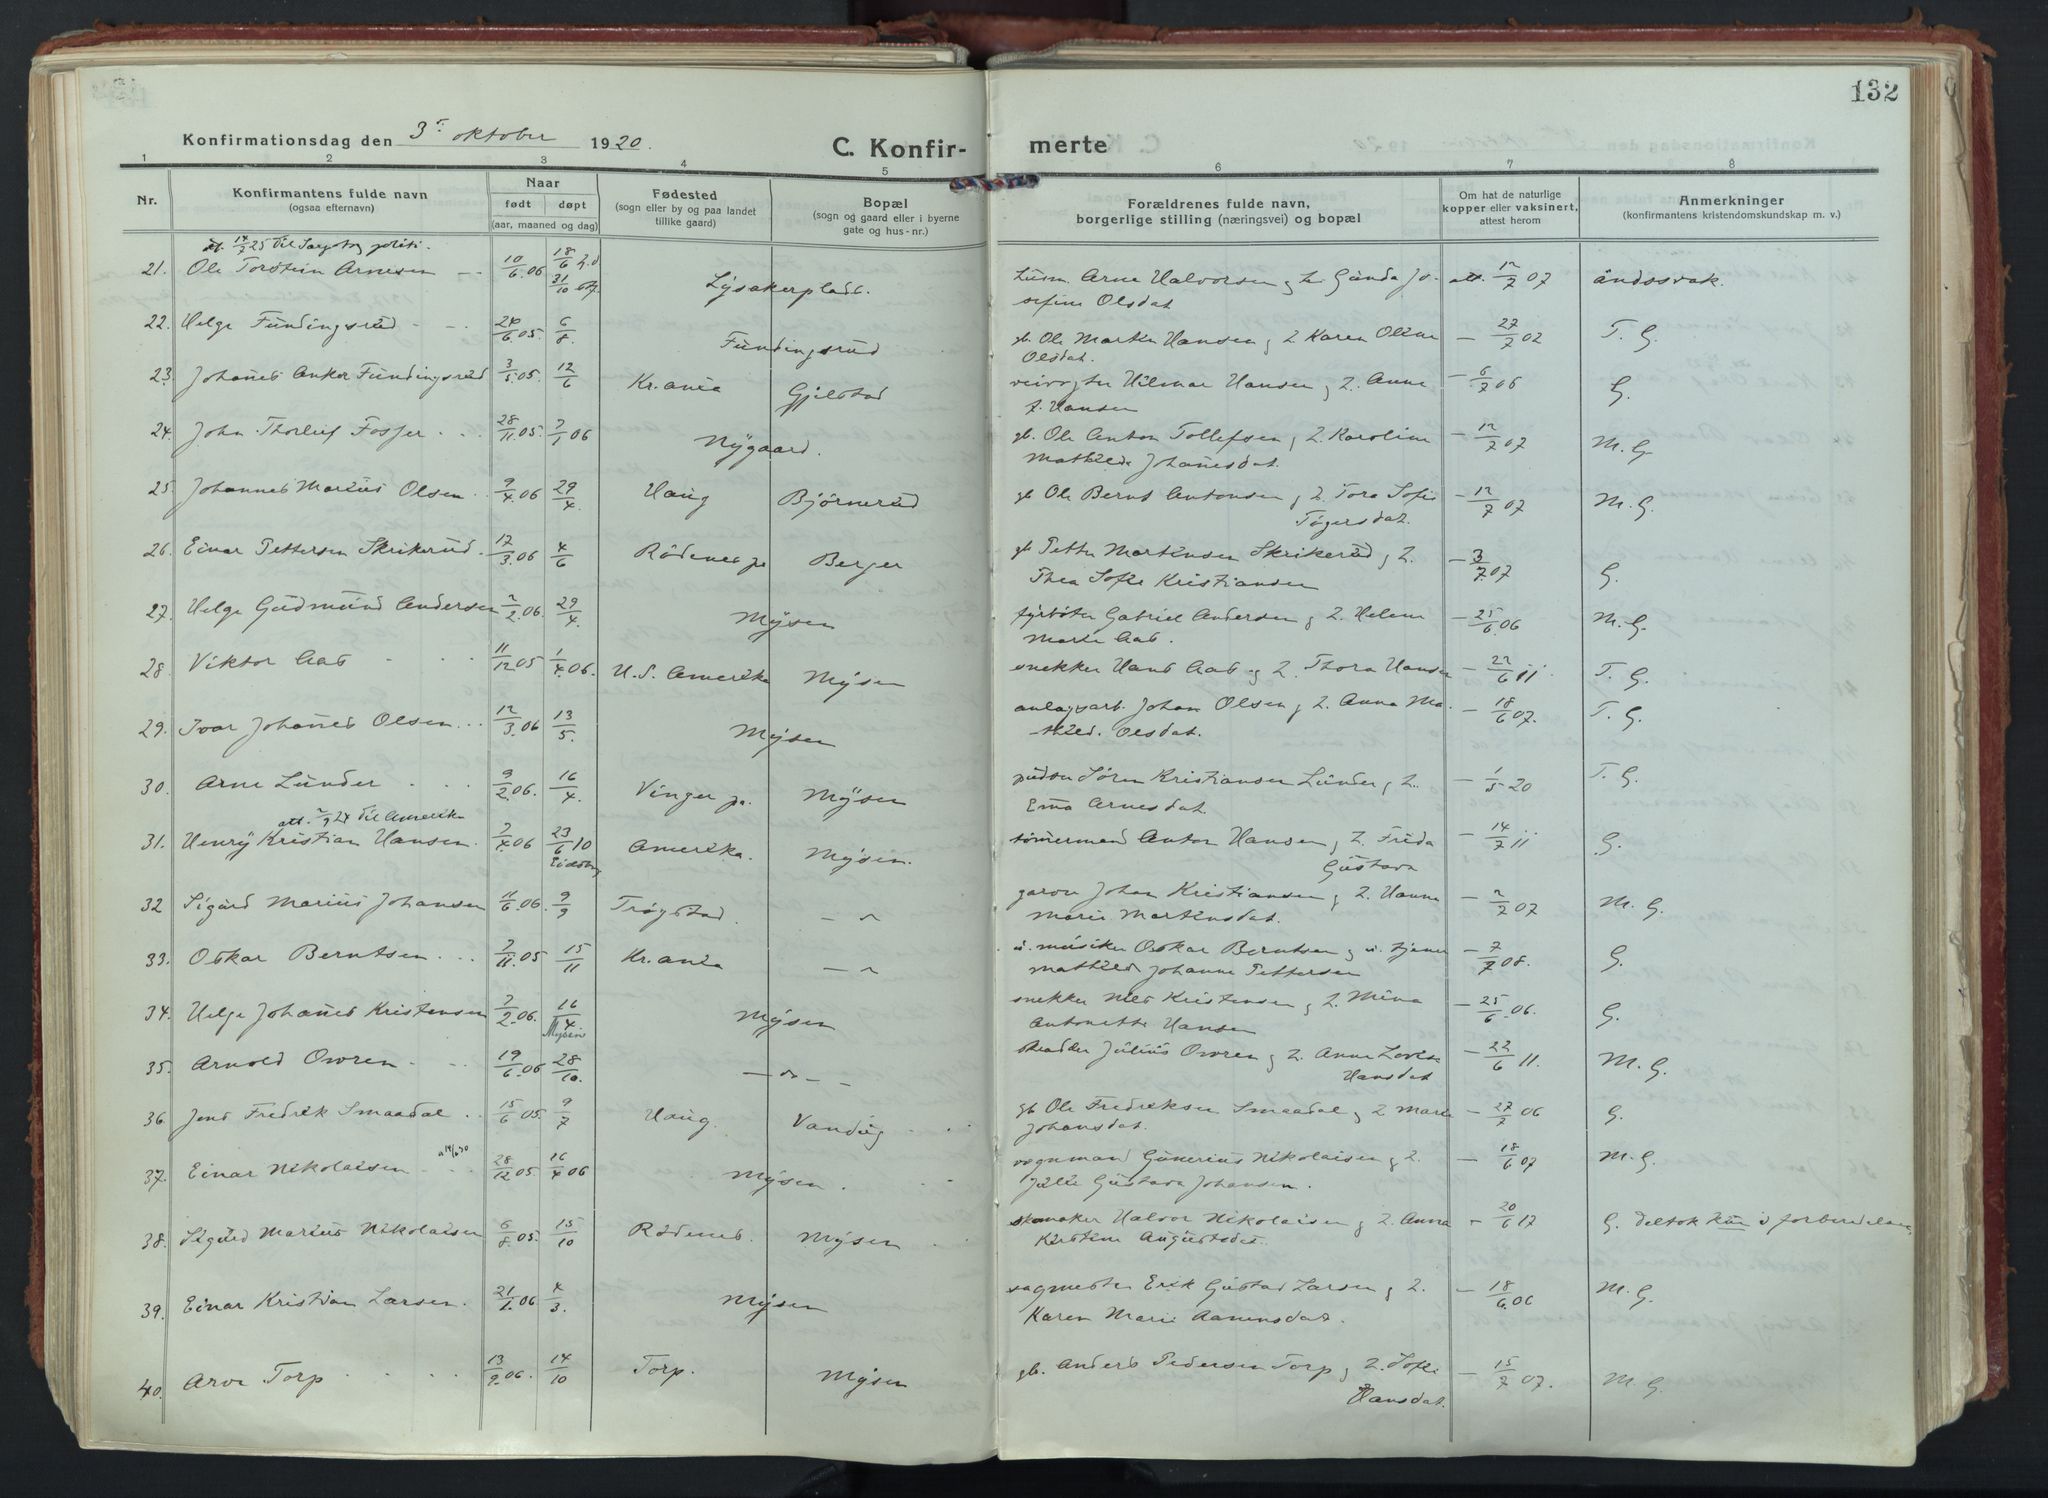 132
Konfirmationsdag den 3. oktober 1920.
C. Konfir-
merte
1 2 3 4 5 6 7 8
Nr.
Konfirmantens fulde navn
(ogsaa efternavn)
Naar
født døpt
(aar, maaned og dag)
Fødested
(sogn eller by og paa landet
tillike gaard)
Bopæl
(sogn og gaard eller i byerne
gate og hus-nr.)
Forældrenes fulde navn,
borgerlige stilling (næringsvei) og bopæl
Om hat de naturlige
kopper eller vaksinert,
attest herom
Anmerkninger
(konfirmantens kristendomskundskap m. v.)
14/7 25 til politi.
21. Ole Torstein Arnesen 10/6 06 18/6 31/10 Lysakerplads. Arne Halvorsen og h. Gunda Jo- att. 12/7 07 åndssvak.
sefine Olsdat.
22. Helge Fundingsrud 24/6 05. 6/8. Fundingsrud gb. Ole Martin Hansen og h. Karen Oline — 27/7 02 T. G.
Olsdat.
23. Johanes Anker Fundingsrud 3/5 05. 12/6 Kr.ania Gjelstad veivogter Hilmar Hansen og h. Anna — 6/7 06 G.
f. Hansen
24. John Thorleif Fosser 28/11 05. 7/1 06 Nygaard. gb. Ole Anton Tollefsen og h. Karoline — 12/7 07 M. G.
Mathilde Johanesdat.
25. Johannes Marius Olsen 9/4 06 29/4. Haug Bjørnerud gb Ole Bernt Antonsen og h. Tora Sofie — 12/7 07 M. G.
Tøgersdat.
26. Einar Pettersen Skrikerud. 17/3 06 4/6 Rødenes pr Berger gb Petter Martinsen Skrikerud og h. — 3/7 07 G.
Thea Sofie Kristiansen
27. Helge Gudmund Andersen 2/2 06. 29/4. Mysen fyrbøter Gabriel Andersen og h. Helene — 25/6 06 M. G.
Marie Aas.
28. Viktor Aas 11/12 05 1/4 06. U. S. Amerika Mysen snekker Hans Aas og h. Thora Hansen — 22/6 11. T. G.
29. Ivar Johanes Olsen 12/3 06 13/5. Mysen anlægsarb. Johan Olsen og h. Anna Ma- — 18/6 07. T. G.
thild. Olsdat.
30. Arne Lunder 9/2 06. 16/4. Vinger pr. Mysen pudser Søren Kristiansen Lunder og h. — 1/5 20 T. G.
Ema Arnesdat.
att. 2/9 24 til Amerika
31. Henry Kristian Hansen. 7/4 06 23/6 10 Eidsberg Amerika. Mysen. tømermand Anton Hansen og h. Frida — 14/7 11 G.
Gustava
32 Sigurd Marius Johansen 11/6 06. 9/9 Trøgstad. — " garver Johan Kristiansen og h. Hanna — 2/7 07 M. G.
Marie Martinsdat.
33. Oskar Berntsen 7/11 05 15/11 Kr.ania — " u. musiker Oskar Berntsen og u. tjener — 7/7 08. G.
Mathilde Johanne Pettersen
34. Helge Johanes Kristensen 7/2 06. 16/4 Mysen Mysen snekker Nils Kristensen og h. Mina — 25/6 06. G.
Antonette Hansen
35. Arnold Owren 19/6 06 28/10. — " — — skrædder Julius Owren og h. Anna Lovise — 22/6 11. M. G.
Hansdat
36. Jens Fredrik Smaadal 15/6 05. 9/7 Haug. Vandug gb Ole Fredriksen Smaadal og h Marie — 27/7 06 G.
Johansdat.
37. Einar Nikolaisen a 14/6 30 28/12 05 16/4 06 Mysen. vognmand Gunerius Nikolaisen og h. — 18/6 07 M. G.
Julie Gustava Johansen.
38. Sigurd Marius Nikolaisen 6/8 05. 15/10 Rødenes. Mysen skomaker Halvor Nikolaisen og h. Anna — 20/6 17 G. deltok kun i forberedelsen
Kirstine Augustsdat.
39. Einar Kristian Larsen. 21/1 06 4/3. Mysen sagmester Erik Gustav Larsen og h. — 18/6 06 M. G.
Karen Marie Aanensdat.
40. Arve Torp 13/9 06. 14/10 Torp. Mysen gb. Anders Pedersen Torp og h. Sofie — 15/7 07. M. G.
Hansdat.